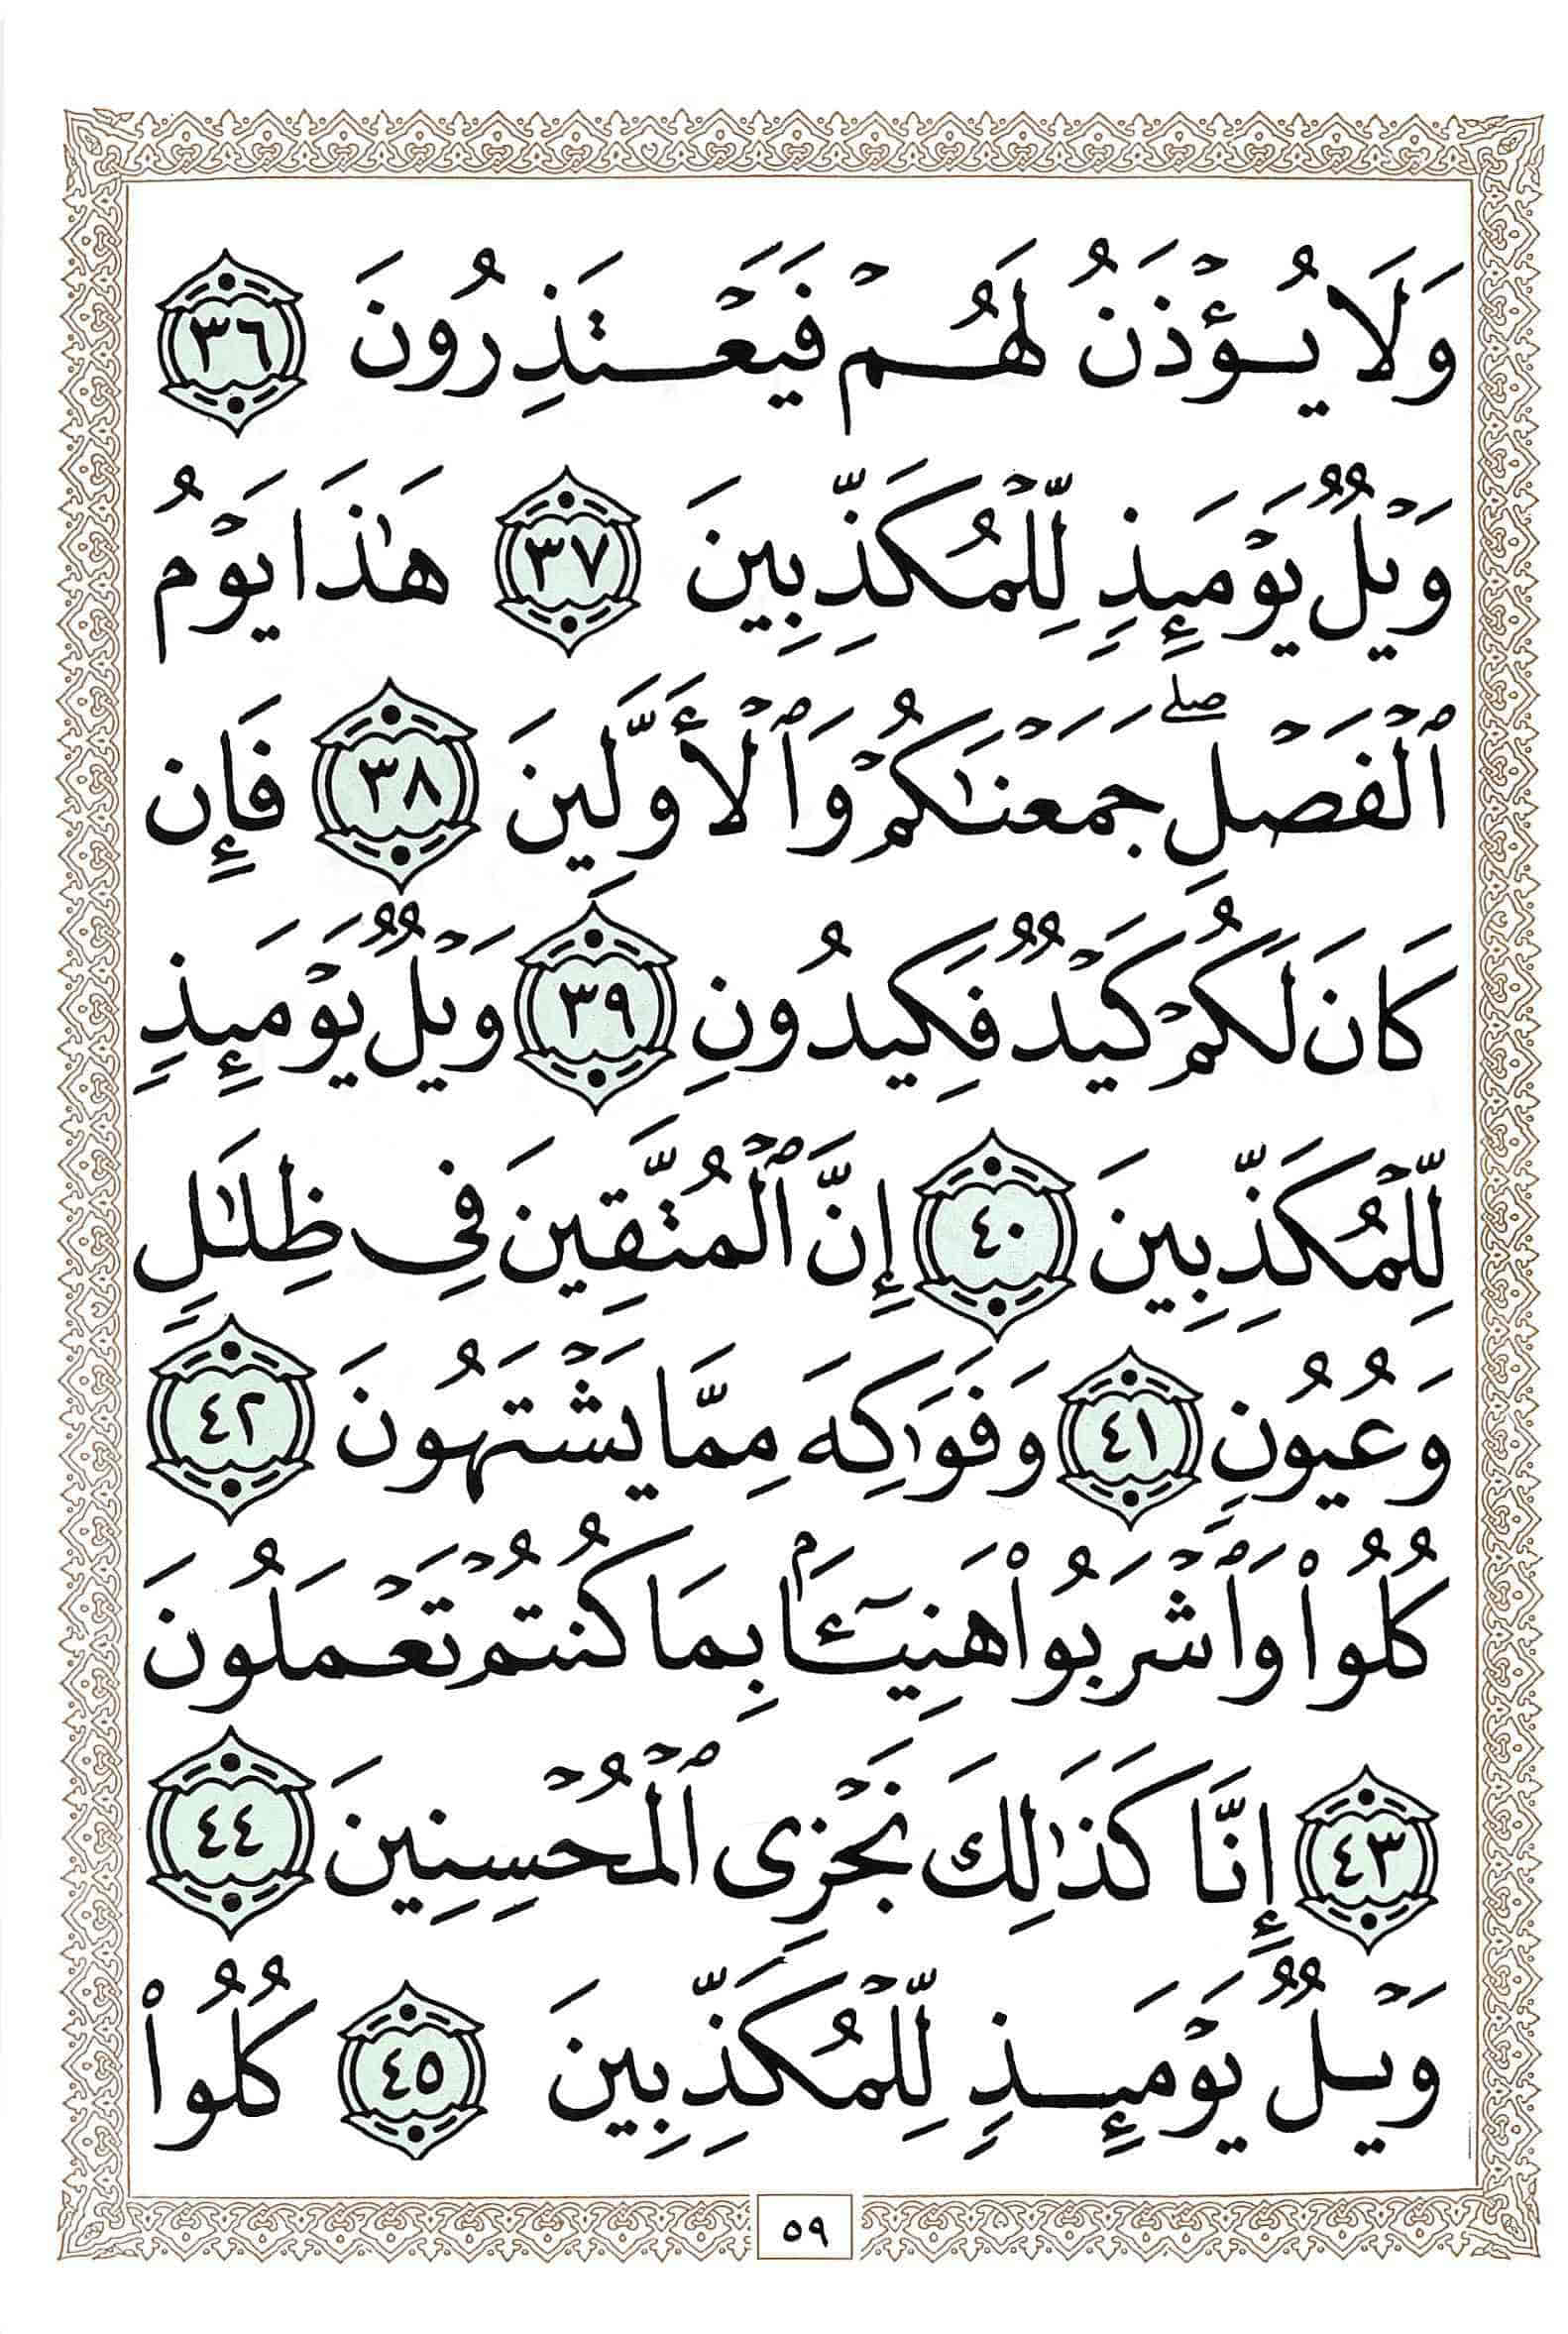 وَلَا يُؤْذَنُ لَهُمْ فَيَعْتَذِرُونَ ٣٦
وَيْلٌ يَوْمَئِذٍ لِّلْمُكَذِّبِينَ ٣٧ هَٰذَا يَوْمُ
ٱلْفَصْلِ ۖ جَمَعْنَٰكُمْ وَٱلْأَوَّلِينَ ٣٨ فَإِن
كَانَ لَكُمْ كَيْدٌ فَكِيدُونِ ٣٩ وَيْلٌ يَوْمَئِذٍ
لِّلْمُكَذِّبِينَ ٤٠ إِنَّ ٱلْمُتَّقِينَ فِى ظِلَٰلٍ
وَعُيُونٍ ٤١ وَفَوَٰكِهَ مِمَّا يَشْتَهُونَ ٤٢
كُلُوا۟ وَٱشْرَبُوا۟ هَنِيٓـَٔۢا بِمَا كُنتُمْ تَعْمَلُونَ
٤٣ إِنَّا كَذَٰلِكَ نَجْزِى ٱلْمُحْسِنِينَ ٤٤
وَيْلٌ يَوْمَئِذٍ لِّلْمُكَذِّبِينَ ٤٥ كُلُوا۟
٥٩